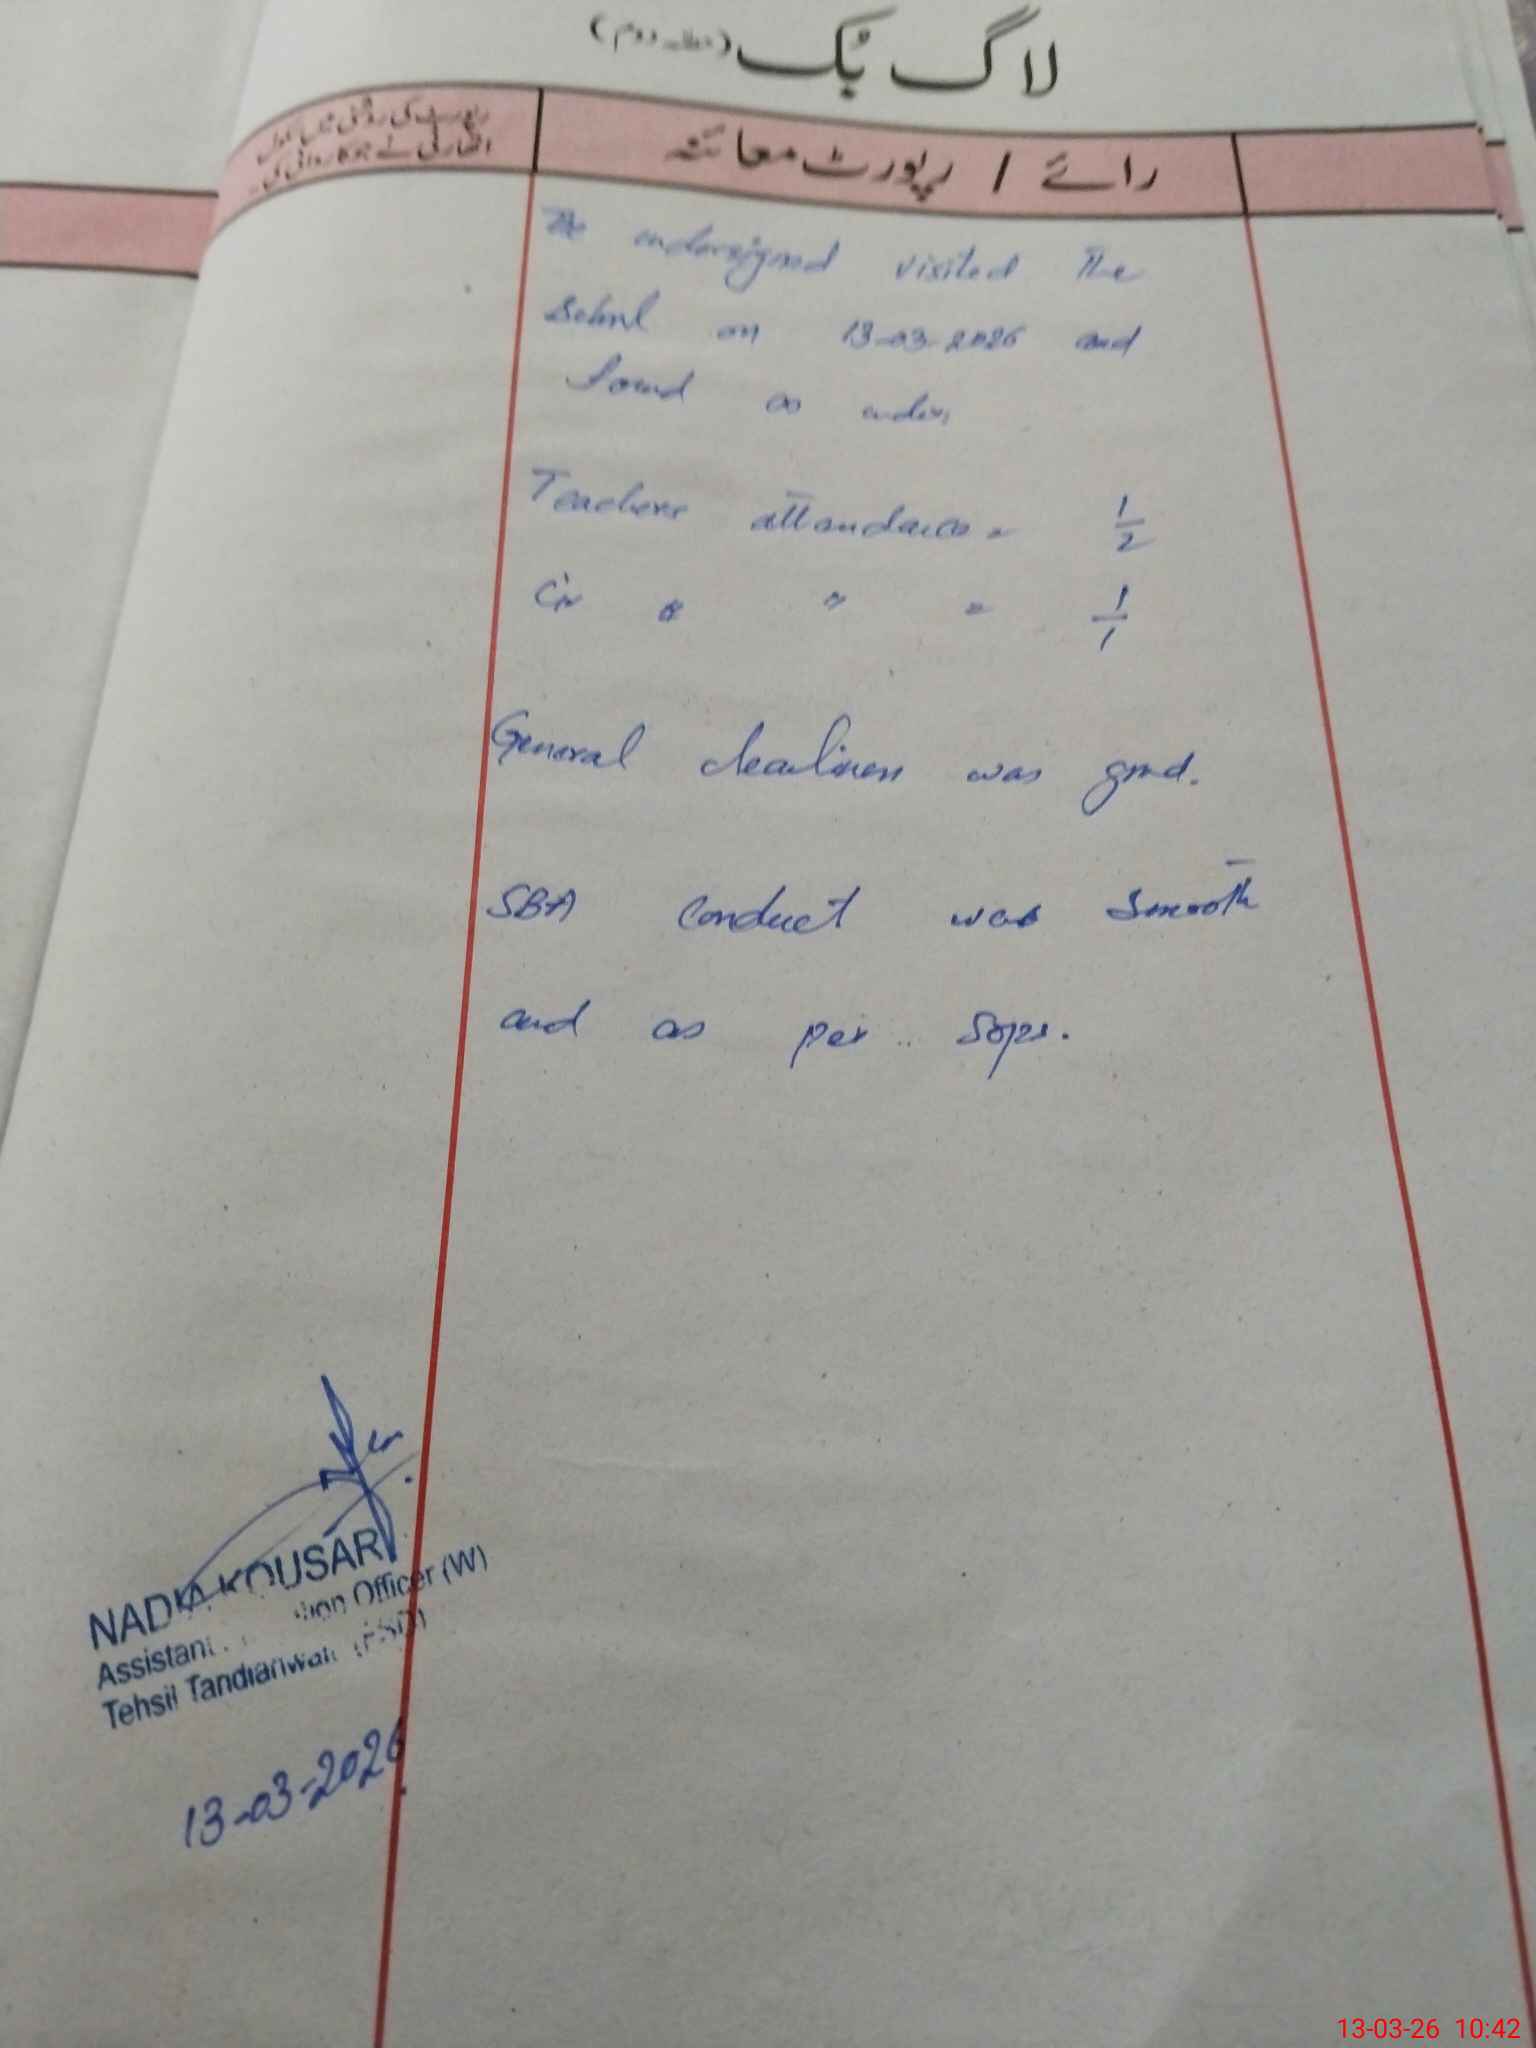 لاگ بک (حصہ دوم)
رائے / رپورٹ معائنہ
رپورٹ کی روشنی میں
اتھارٹی نے جو کاروائی کی۔
The undersigned visited the
School on 13-03-2026 and
found as under,
Teachers attendance = 1/2
C/w " " = 1/1
General cleanliness was good.
SBA conduct was smooth
and as per Sops.
NADIA KOUSAR
Assistant Officer (W)
Tehsil Tandlianwala (FSD)
13-03-2026
13-03-26 10:42